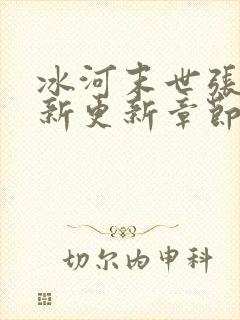 冰河末世張
新更新章節
切尔内申科